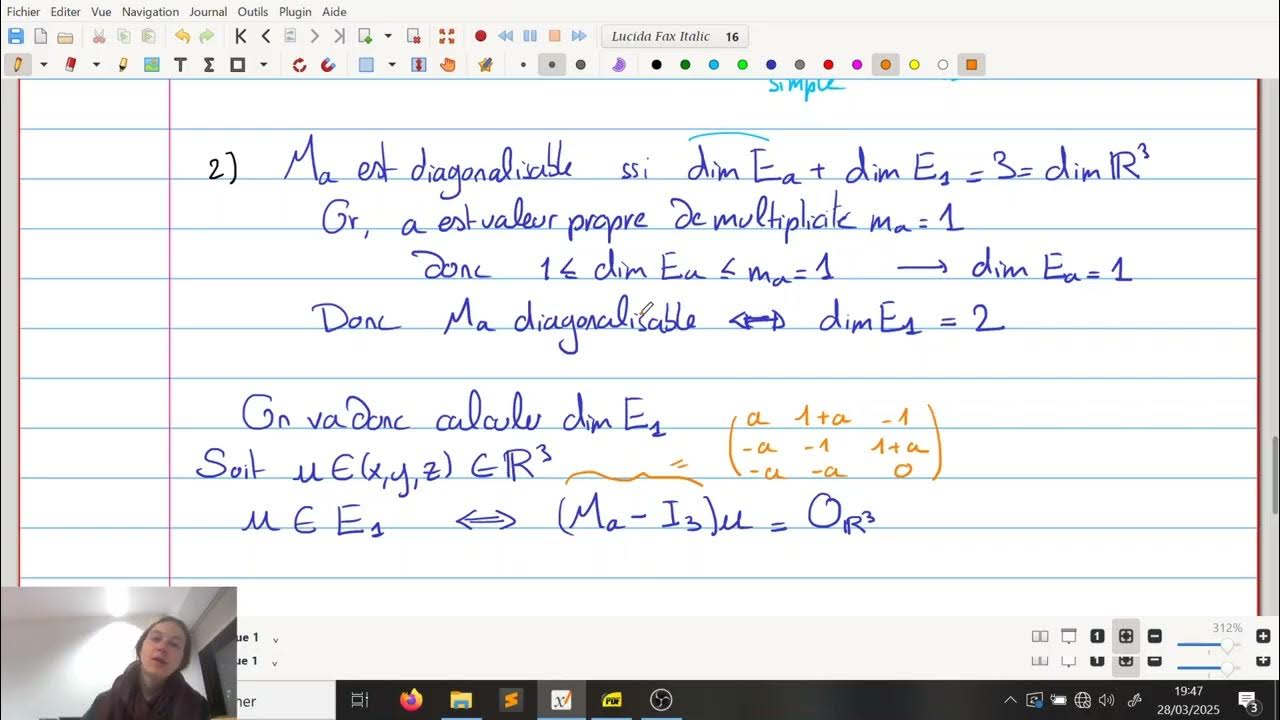 Fichier Editer Vue Navigation Journal Outils Plugin Aide
Lucida Fax Italic 16
simple
2) Ma est diagonalisable ssi dim Ea + dim E1 = 3 = dim ℝ³
Or, a est valeur propre de multiplicité ma = 1
donc 1 ≤ dim Ea ≤ ma = 1 → dim Ea = 1
Donc Ma diagonalisable ⟺ dim E1 = 2
On va donc calculer dim E1
a 1+a -1
-a -1 1+a
-a -a 0
Soit u ∈ (x,y,z) ∈ ℝ³ =
u ∈ E1 ⟺ (Ma - I3)u = 0ℝ³
ue 1
312%
ue 1
her
19:47
28/03/2025
3